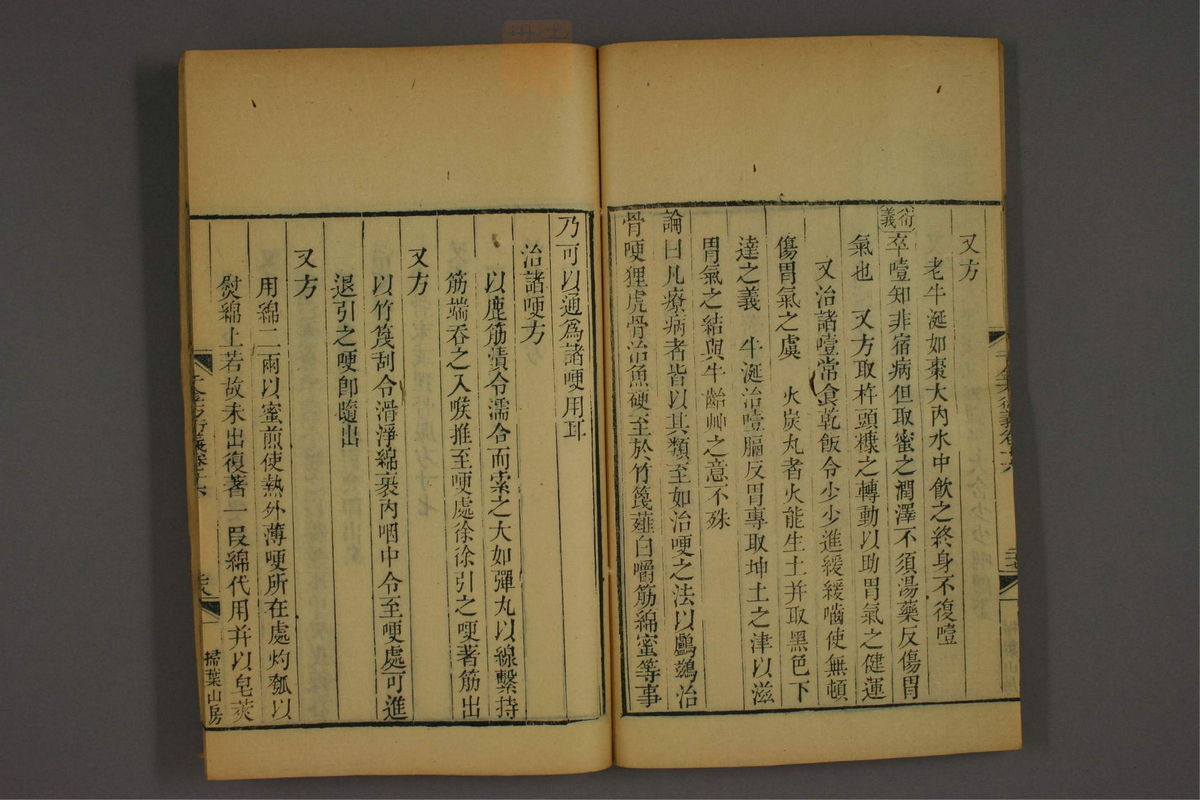 又方
老牛涎如棗大內水中飲之終身不復噎
衍義
卒噎知非宿病但取蜜之潤澤不須湯藥反傷胃
氣也　又方取杵頭糠之轉動以助胃氣之健運
又治諸噎常食乾飯令少少進緩緩嚙使無頓
傷胃氣之虞　火炭丸者火能生土并取黑色下
達之義　牛涎治噎膈反胃專取坤土之津以滋
胃氣之結與牛齝艸之意不殊
論曰凡療病者皆以其類至如治哽之法以鸕鷀治
骨哽狸虎骨治魚硬至於竹篾薤白嚼筋綿蜜等事
乃可以通爲諸哽用耳
治諸哽方
以鹿筋漬令濡合而索之大如彈丸以線繫持
筋端吞之入喉推至哽處徐徐引之哽著筋出
又方
以竹篾刮令滑淨綿裹內咽中令至哽處可進
退引之哽卽隨出
又方
用綿二兩以蜜煎使熱外薄哽所在處灼瓠以
熨綿上若故未出復著一段綿代用并以皂莢
掃葉山房